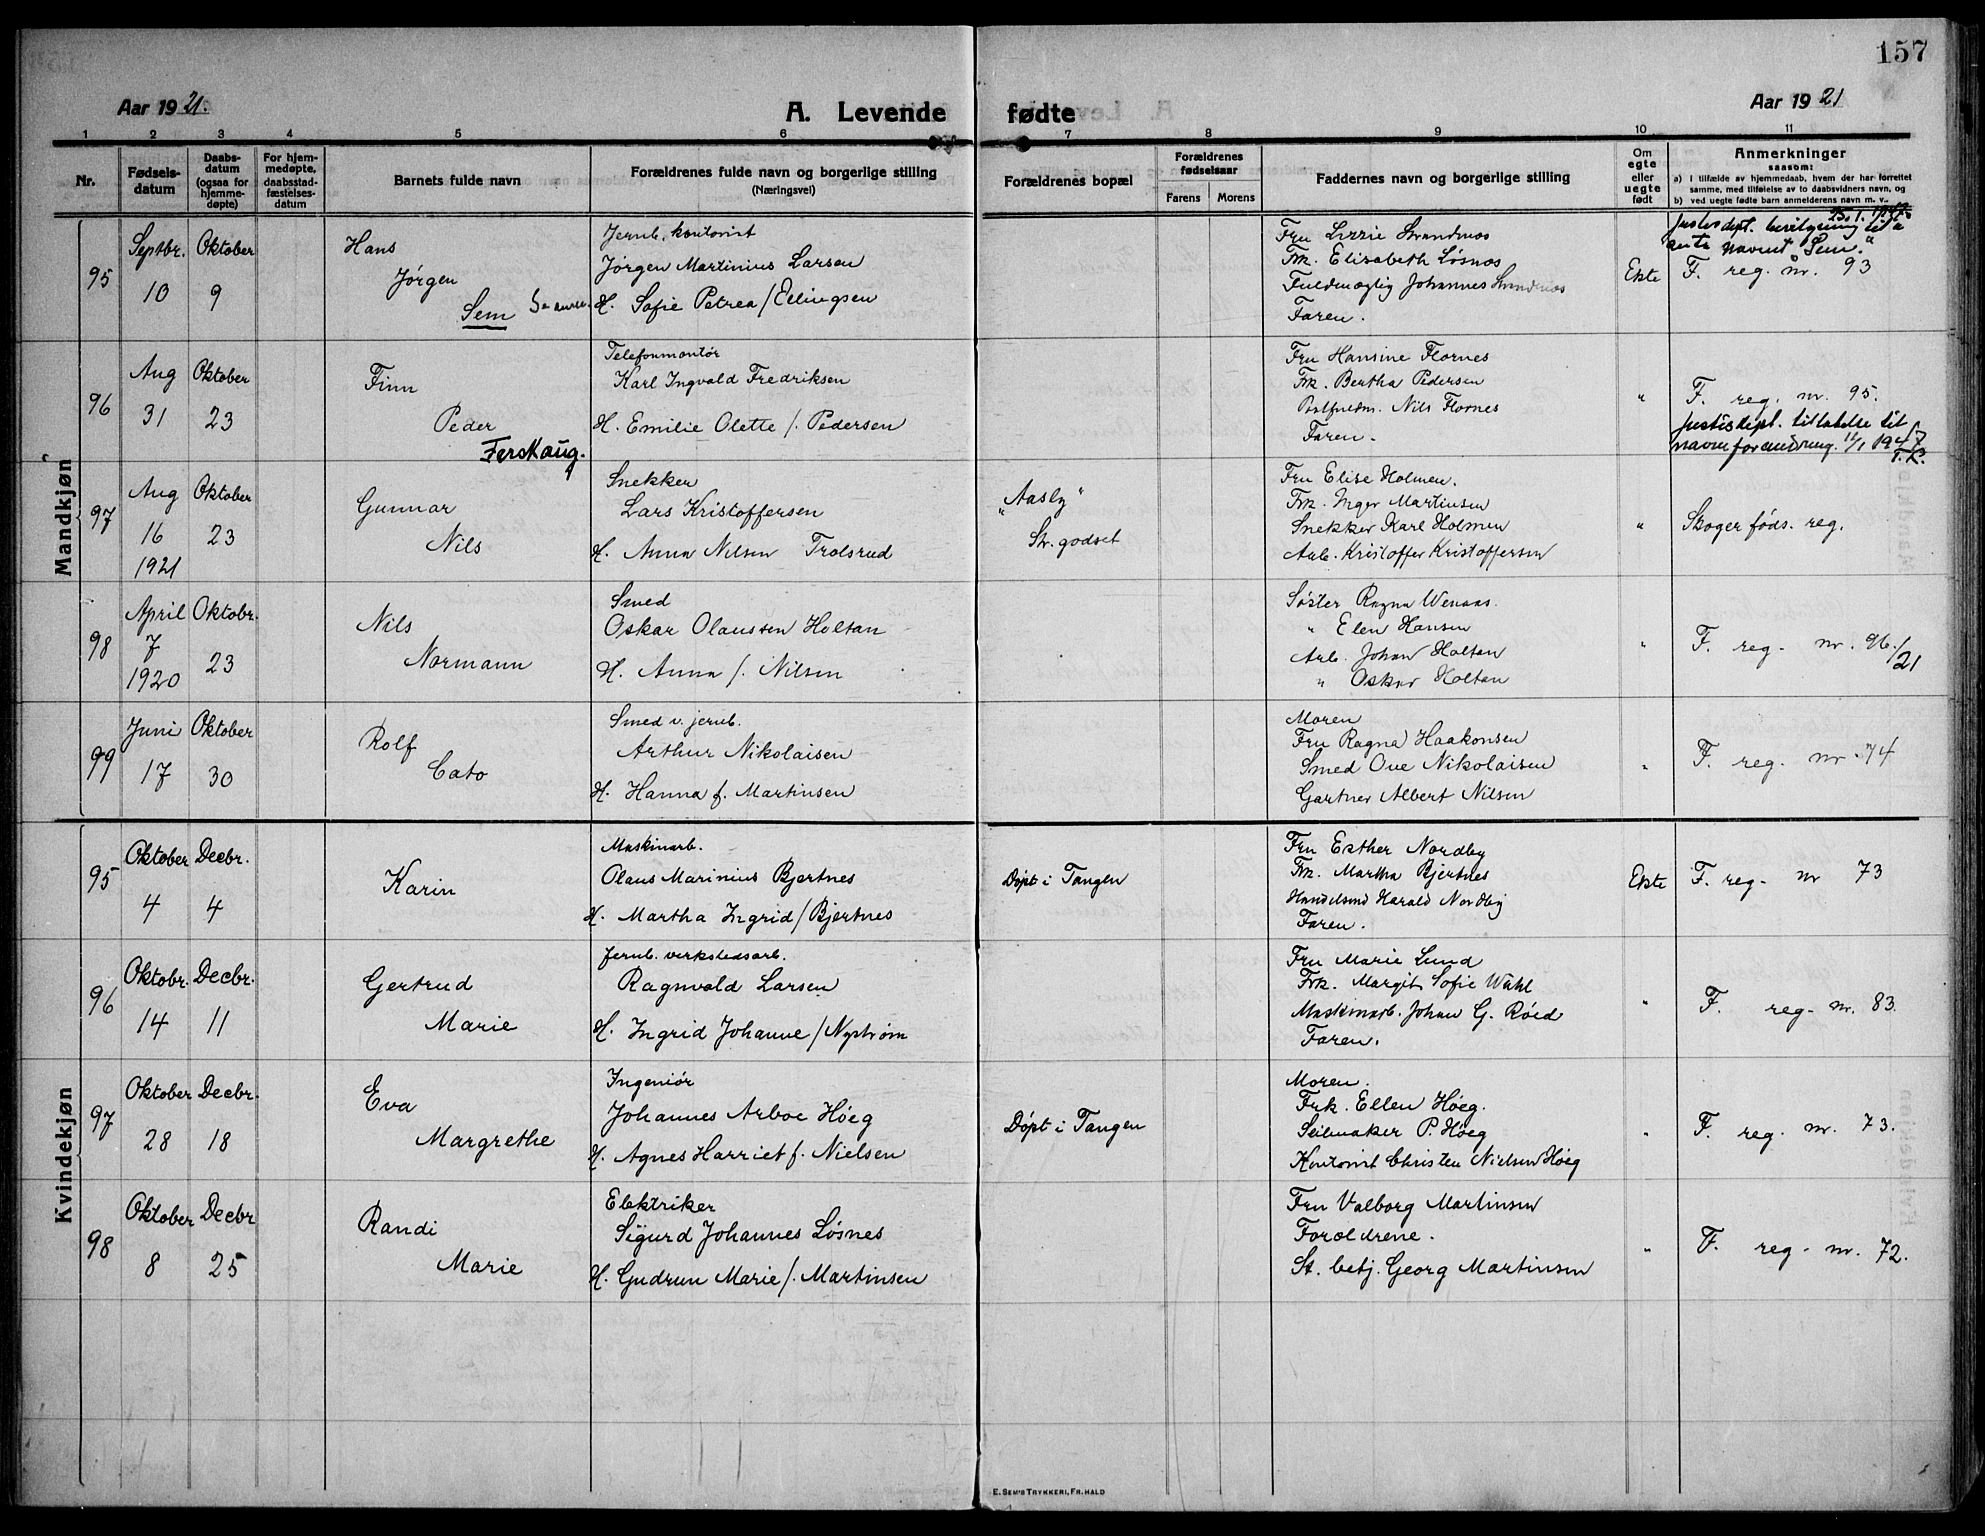 157
Aar 1921.
A. Levende
fødte
Aar 1921
1 2 3 4 5 6 7 8 9 10 11
Nr.
Fødsels-
datum
Daabs-
datum
(ogsaa for
hjemme-
døpte)
For hjem-
medøpte,
daabsstad-
fæstelses-
datum
Barnets fulde navn
Forældrenes fulde navn og borgerlige stilling
(Næringsvei)
Forældrenes bopæl
Forældrenes
fødselsaar
Farens Morens
Faddernes navn og borgerlige stilling
Om
egte
eller
uegte
født
Anmerkninger
saasom:
a) I tilfælde av hjemmedaab, hvem der har forrettet
samme, med tilføielse av to daabsvidners navn, og
b) ved uegte fødte barn anmelderens navn m. v.
Mandkjøn
95
Septbr.
10
Oktober
9
Hans
Jørgen
Sem
Jernb. kontorist
Jørgen Martinius Larsen
H. Sofie Petrea / Ellingsen
Fru Lizzie Strandnæs
Frk. Elisabeth Løsnæs
Fuldmægtig Johannes Strandnæs
Faren.
Ekte
25.1.
Justisdept. bevilgning til å
navnet "Sem."
F. reg. nr. 93
96
Aug
31
Oktober
23
Finn
Peder
Ferskaug.
Telefonmontør
Karl Ingvald Fredriksen
H. Emilie Olette /. Pedersen
Fru Hansine Flornes
Frk. Bertha Pedersen
Nils Flornes
Faren.
"
F. reg. nr. 95.
Justisdept. tillatelse til
navneforandring 11/1 1947
T.K.
97
Aug
16
1921
Oktober
23
Gunnar
Nils
Snekker
Lars Kristoffersen
H. Anna Nilsen Trolsrud
"Aasly"
Str. godset
Fru Elise Holmen.
Frk. Inger Martinsen
Snekker Karl Holmen
Arb. Kristoffer Kristoffersen
"
Skoger føds. reg.
98
April
7
1920
Oktobr.
23
Nils
Normann
Smed
Oskar Olaussen Holtan
H. Anna /. Nilsen
Søster Ragna Wenaas.
" Elen Hansen
Arb. Johan Holtan
" Oskar Holtan
"
F. reg. nr. 96./21
99
Juni
17
Oktober
30
Rolf
Cato
Smed v. jernb.
Arthur Nikolaisen
H. Hanna f. Martinsen
Moren
Fru Ragna Haakonsen
Smed Ove Nikolaisen
Gartner Albert Nilsen
"
F. reg. nr. 74
Kvindekjøn
95
Oktober
4
Decbr.
4
Karin
Maskinarb.
Olaus Marinius Bjertnes
H. Martha Ingrid / Bjertnes
Døpt i Tangen
Fru Esther Nordby
Frk. Martha Bjertnes
Harald Nordby
Faren.
Ekte
F. reg. nr 73
96
Oktobr.
14
Decbr.
11
Gertrud
Marie
Jernb. verkstedsarb.
Ragnvald Larsen
H. Ingrid Johanne / Nystrøm
Fru Marie Lund
Frk. Margit Sofie Wahl
Maskinarb. Johan G. Røed
Faren.
"
F. reg. nr. 83.
97
Oktober
28
Decbr.
18
Eva
Margrethe
Ingeniør
Johannes Arboe Høeg
H. Agnes Harriet f. Nielsen
Døpt i Tangen
Moren.
Frk. Ellen Høeg.
Seilmaker P. Høeg
Kontorist Christen Nielsen Høeg
"
F. reg. nr. 73.
98
Oktober
8
Decbr
25
Randi
Marie
Elektriker
Sigurd Johannes Løsnes
H. Gudrun Marie /. Martinsen
Fru Valborg Martinsen
Forældrene.
St. betj. Georg Martinsen
"
F. reg. nr. 72.
E. SEM'S TRYKKERI, FR.HALD